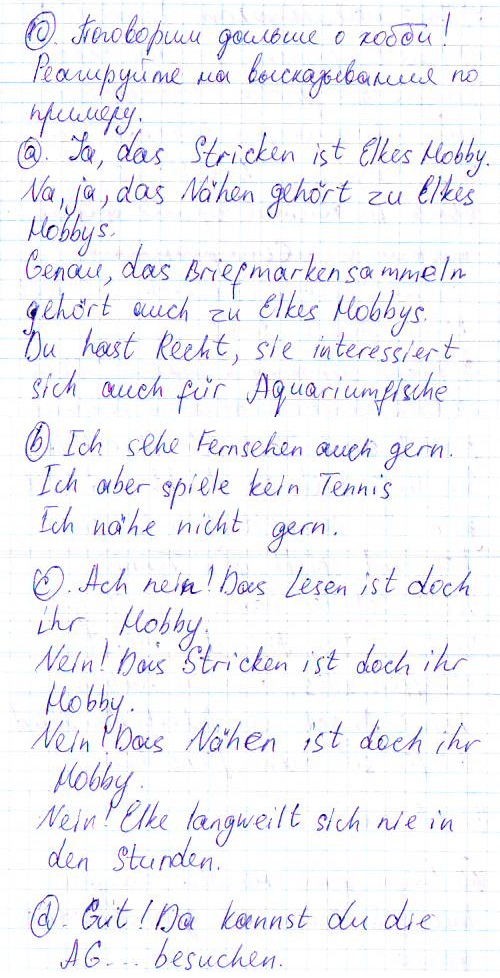 10. Поговорим дальше о хобби!
Реагируйте на высказывания по
примеру.
a. Ja, das Stricken ist Elkes Hobby.
Na, ja, das Nähen gehört zu Elkes
Hobbys.
Genau, das Briefmarkensammeln
gehört auch zu Elkes Hobbys.
Du hast Recht, sie interessiert
sich auch für Aquariumfische
b. Ich sehe Fernsehen auch gern.
Ich aber spiele kein Tennis
Ich nähe nicht gern.
c. Ach nein! Das Lesen ist doch
ihr Hobby.
Nein! Das Stricken ist doch ihr
Hobby.
Nein! Das Nähen ist doch ihr
Hobby.
Nein! Elke langweilt sich nie in
den Stunden.
d. Gut! Da kannst du die
AG... besuchen.